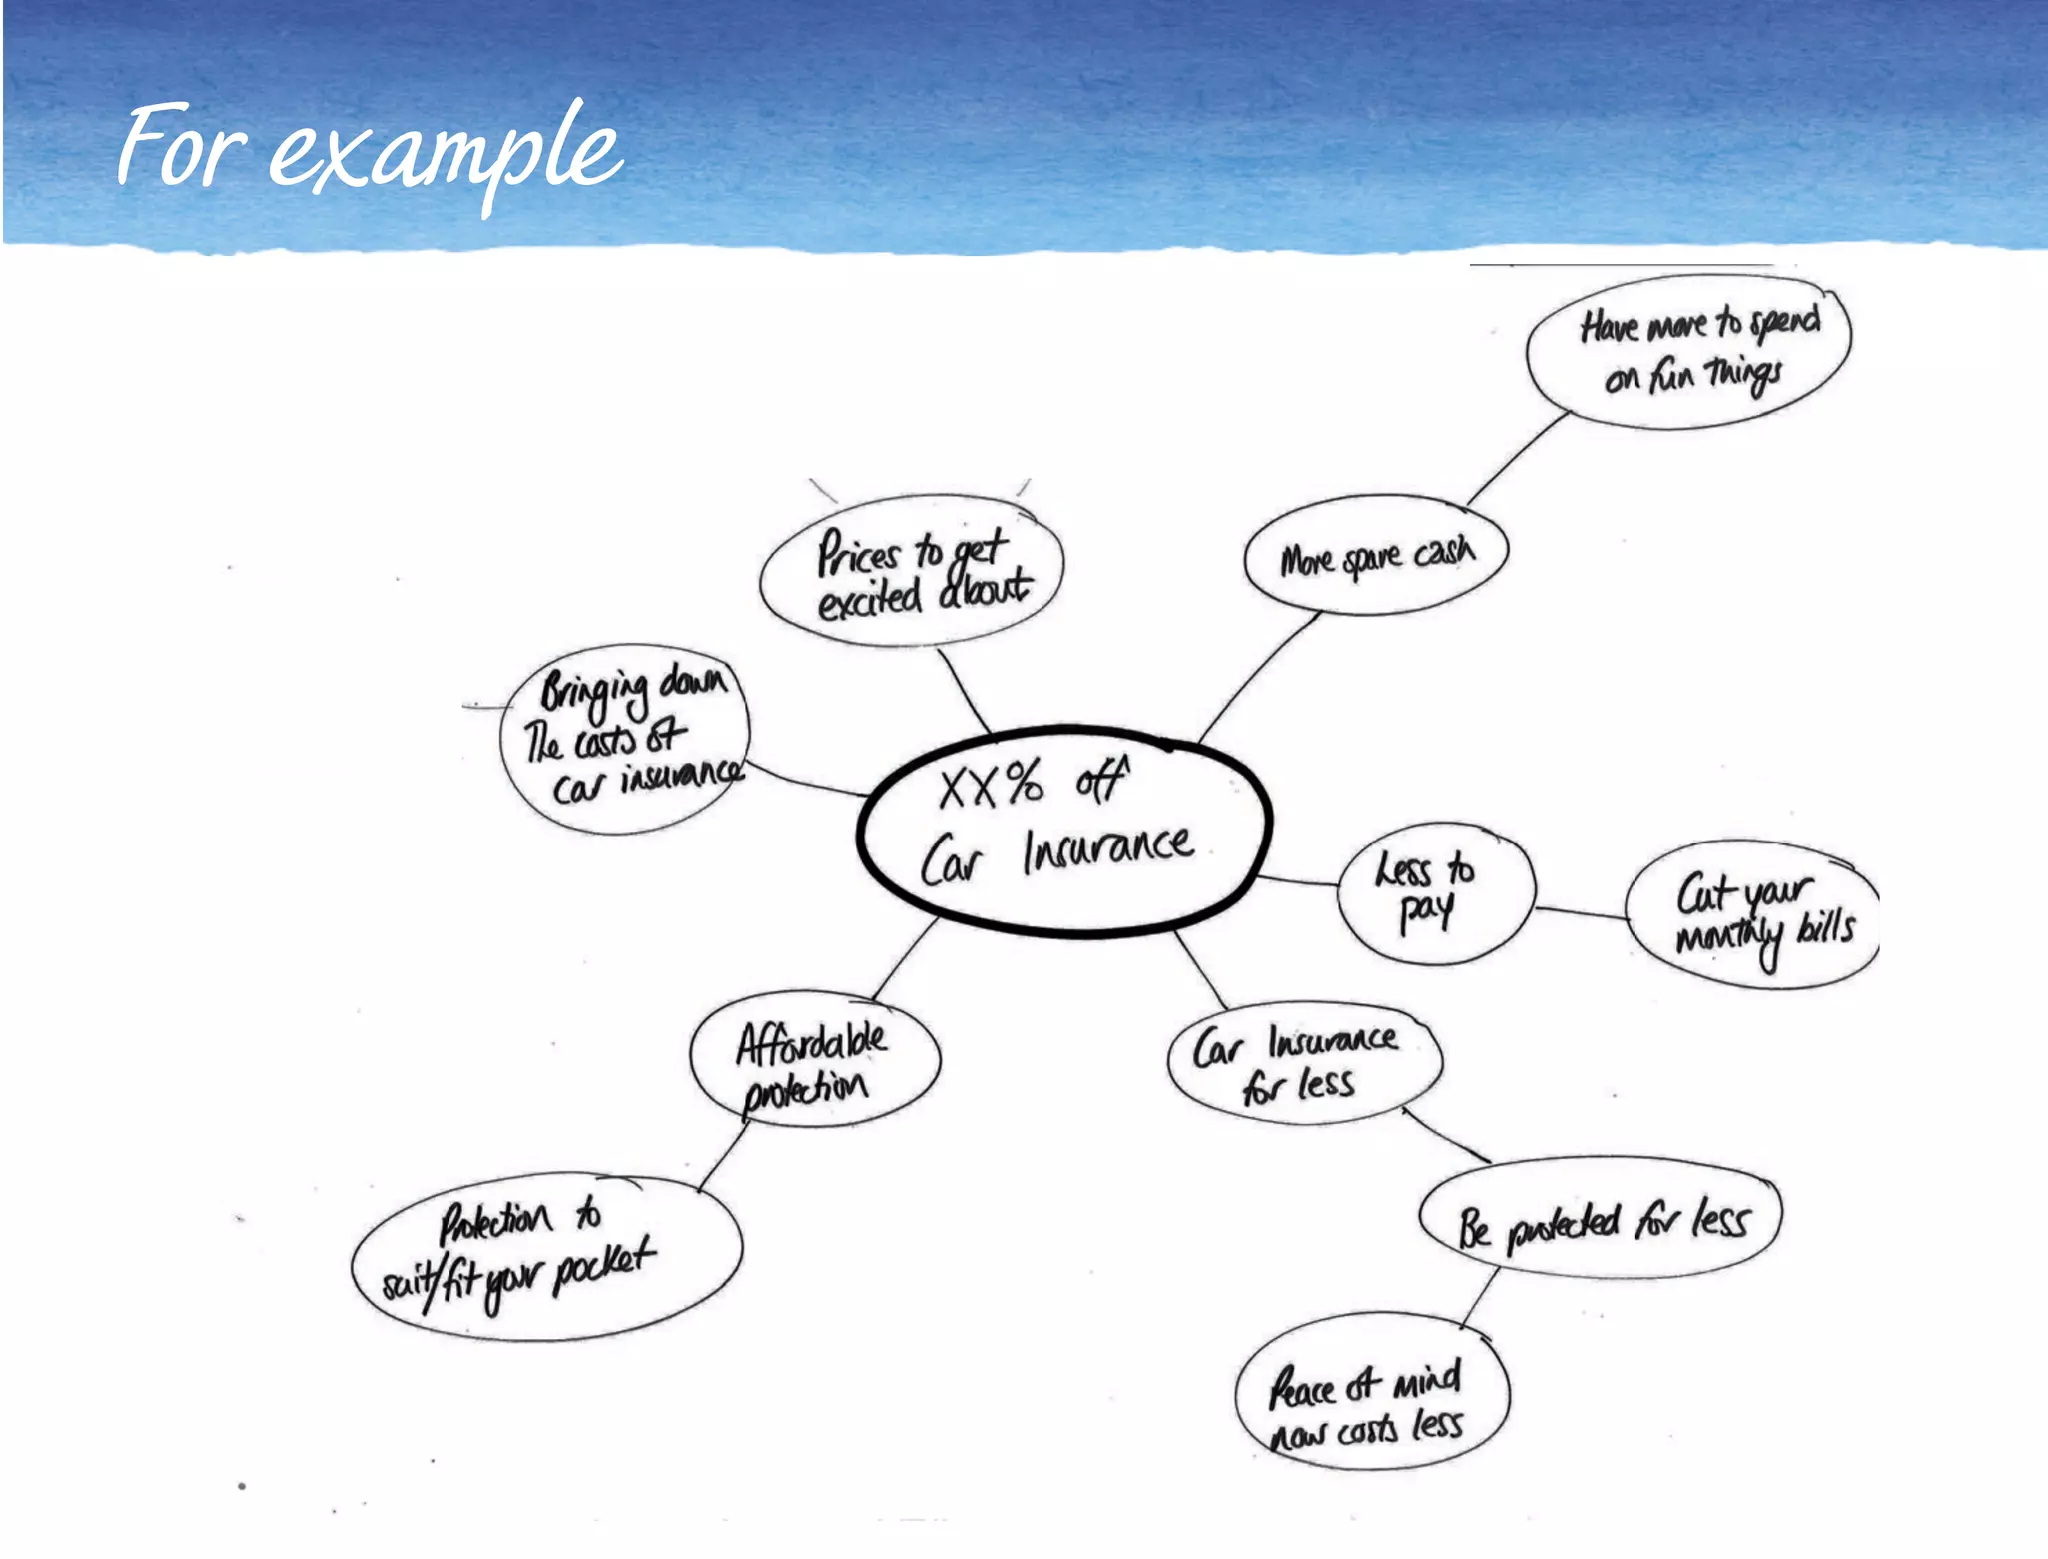 For example
Have more to spend
on fun things
Prices to get
excited about
More spare cash
Bringing down
The costs of
car insurance
XX% off
Car Insurance
Less to
pay
Cut your
monthly bills
Affordable
protection
Car Insurance
for less
Protection to
suit/fit your pocket
Be protected for less
Peace of mind
now costs less